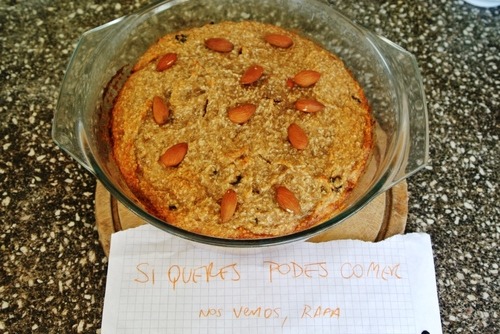 SI QUERES PODES COMER
NOS VEMOS, RAPA